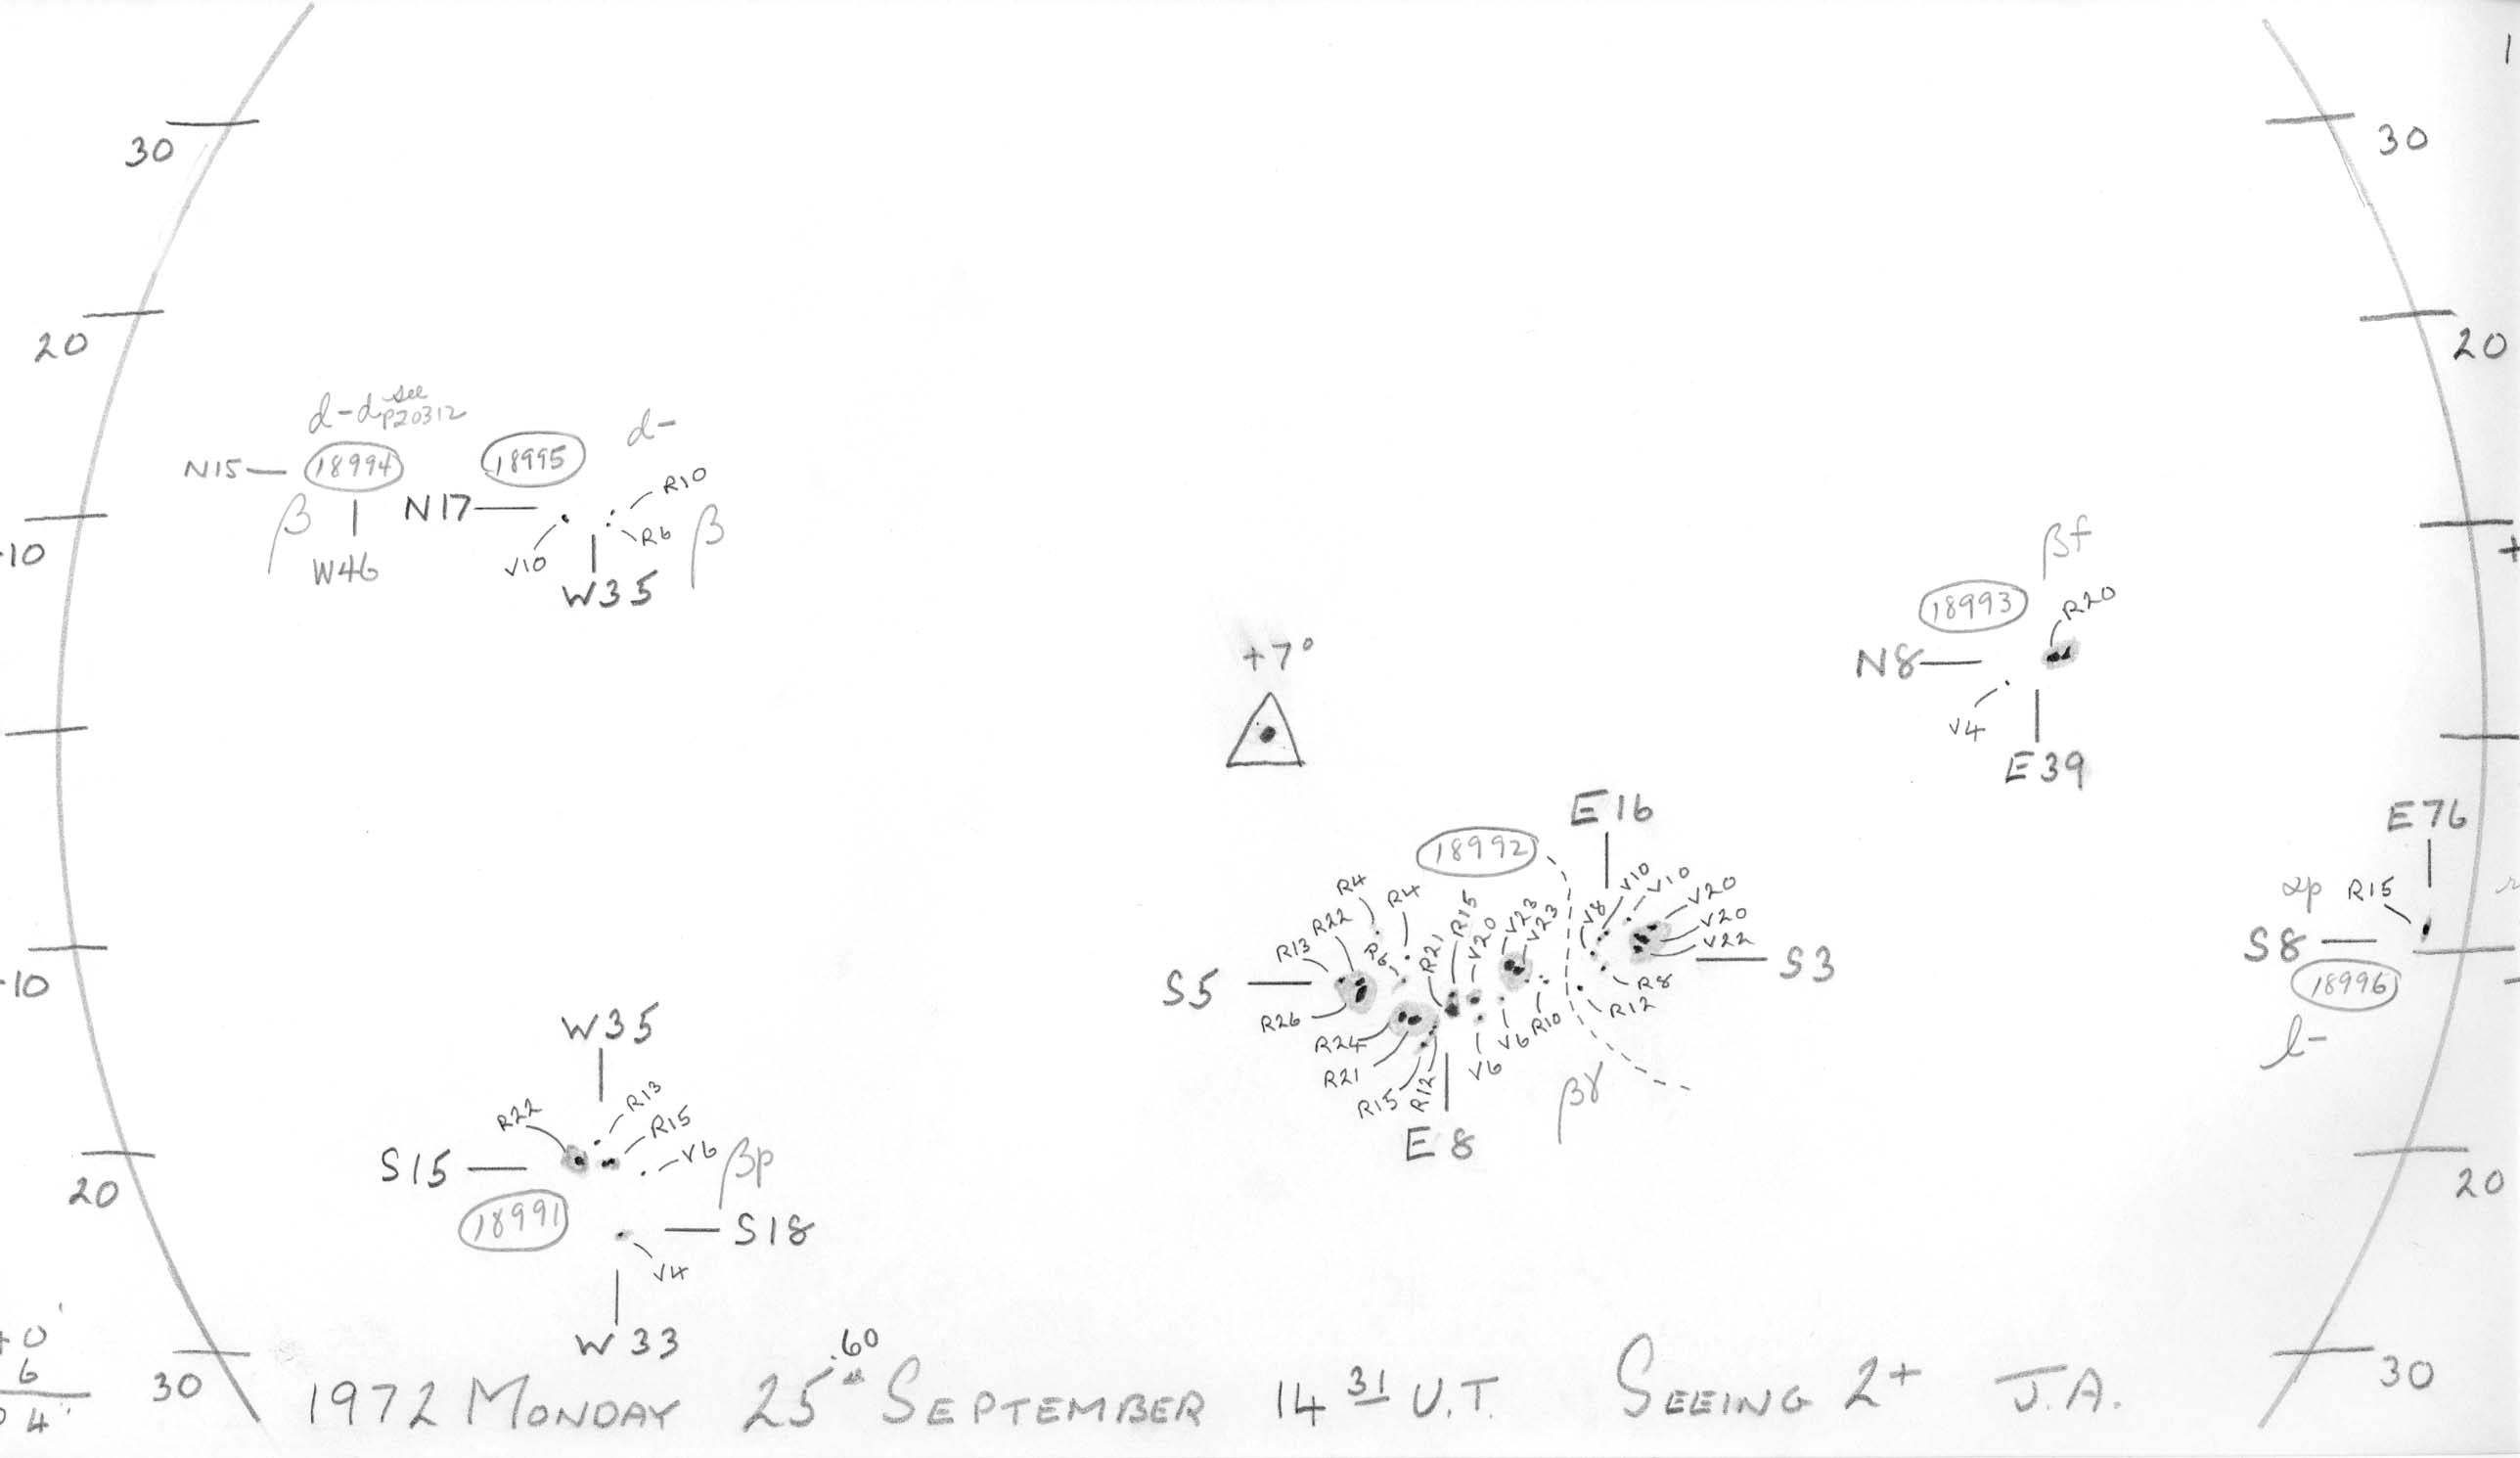 30
30
20
20
d-d see P20312
d-
N15
18994
18995
R10
β
N17
R6
β
V10
W46
W35
10
+
βf
18993
R20
N8
V4
E39
+7°
E16
E76
18992
R4
R4
R15
V20
V23
V23
V8
V10
V10
V20
V20
V22
R13
R22
R6
R21
S5
S3
R8
R12
R26
R24
R21
R15
R12
V6
V6
R10
E8
βγ
αp
R15
S8
18996
l-
10
W35
R22
R13
R15
V6
βp
S15
18991
S18
V4
W33
20
20
+0
6
4
30
30
1972 MONDAY 25.60 SEPTEMBER 14 31 U.T. SEEING 2+ J.A.